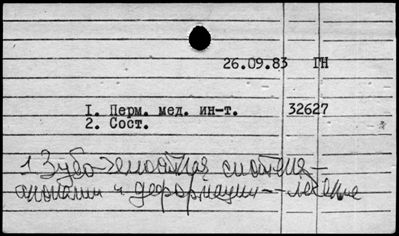 26.09.83 ГН
I. Перм. мед. ин-т. 32627
2. Сост.
1 Зубо-челюстная система -
аномалии и деформации -- лечение